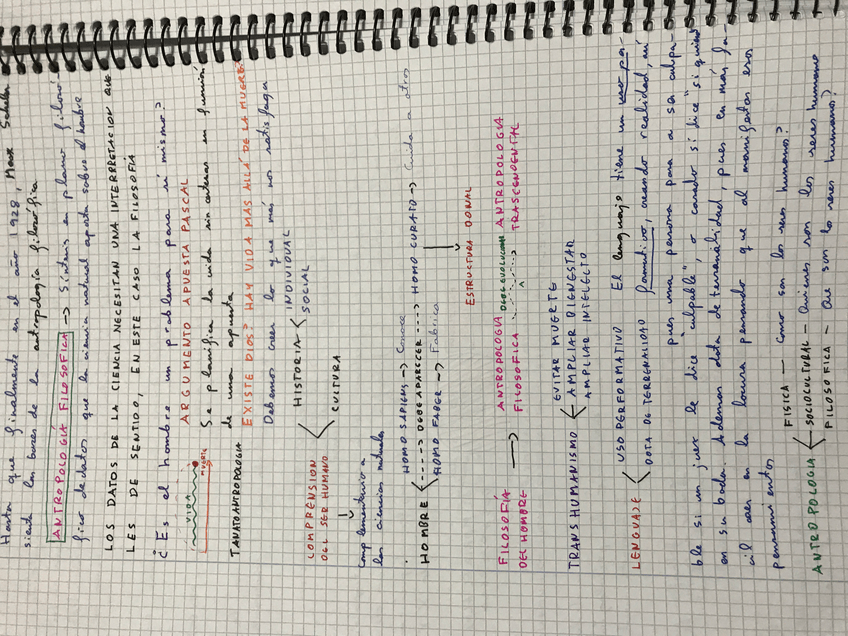 Hasta que finalmente en el año 1928, Max Scheler
siente las bases de la antropología filosófica
ANTROPOLOGÍA FILOSOFICA → Síntesis en plano filosó-
fico de datos que la ciencia natural aporta sobre el hombre
LOS DATOS DE LA CIENCIA NECESITAN UNA INTERPRETACION QUE
LES DE SENTIDO, EN ESTE CASO LA FILOSOFÍA
¿Es el hombre un problema para sí mismo?
ARGUMENTO APUESTA PASCAL
VIDA
MUERTE
Se planifica la vida sin certezas en función
de una apuesta
TANATOANTROPOLOGIA
EXISTE DIOS? HAY VIDA MAS ALLÁ DE LA MUERTE?
Debemos creer lo que más nos satisfaga
COMPRENSION
DEL SER HUMANO
HISTORIA
INDIVIDUAL
SOCIAL
CULTURA
complementario a
las ciencias naturales
HOMBRE
HOMO SAPIENS → Conoce
DEBE APARECER ---→ HOMO CURATO → Cuida a otros
HOMO FABER → Fabrica
ESTRUCTURA DONAL
FILOSOFÍA
DEL HOMBRE
→ ANTROPOLOGÍA
FILOSOFICA
DEBE EVOLUCIONAR
ANTROPOLOGIA
TRASCENDENTAL
TRANSHUMANISMO
EVITAR MUERTE
AMPLIAR BIENESTAR
AMPLIAR INTELECTO
LENGUAJE
USO PERFORMATIVO
DOTA DE TERRENALIDAD
El lenguaje tiene un uso per-
formativo, creando realidad, así
pues una persona pasa a ser culpa-
ble si un juez le dice "culpable", o casado si dice "si quiero"
en su boda. Ademas dota de terrenalidad, pues en más fa-
cil caer en la locura pensando que al manifestar esos
pensamientos
ANTROPOLOGIA
FISICA — Como son los seres humanos?
SOCIOCULTURAL — Quienes son los seres humanos
FILOSOFICA — Que son los seres humanos?